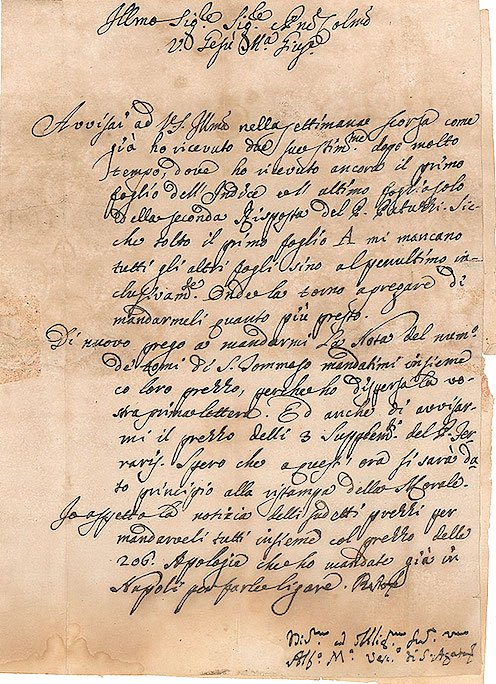 Illmo Sigre Sigre Prone Colmo
V. Gesù Ma Giuse
Avvisai ad V. S. Illma nella settimana scorsa come
già ho ricevuto due sue stimme dopo molto
tempo, dove ho ricevuto ancora il primo
foglio dell'Indice coll'ultimo foglio solo
della seconda Risposta del P. Patuzzi. Sic-
che tolto il primo foglio A mi mancano
tutti gli altri fogli sino al penultimo in-
clusivamte. Onde la torno a pregare di
mandarmeli quanto più presto.
Di nuovo prego a mandarmi la Nota del numo
de tomi di S. Tommaso mandatimi insieme
co loro prezzo, perche ho dispersa la vo-
stra prima lettera. Ed anche di avvisar-
mi il prezzo delli 3 Supplemti del P. Fer-
raris. Spero che a questi ora si sarà da-
to principio alla ristampa della Morale.
Io aspetto la notizia delli sudetti prezzi per
mandarveli tutti insieme col prezzo delle
206. Apologie che ho mandate già in
Napoli per farle ligare. Resto
Di V. S. Illma
Alfo Ma Vesco di S. Agata